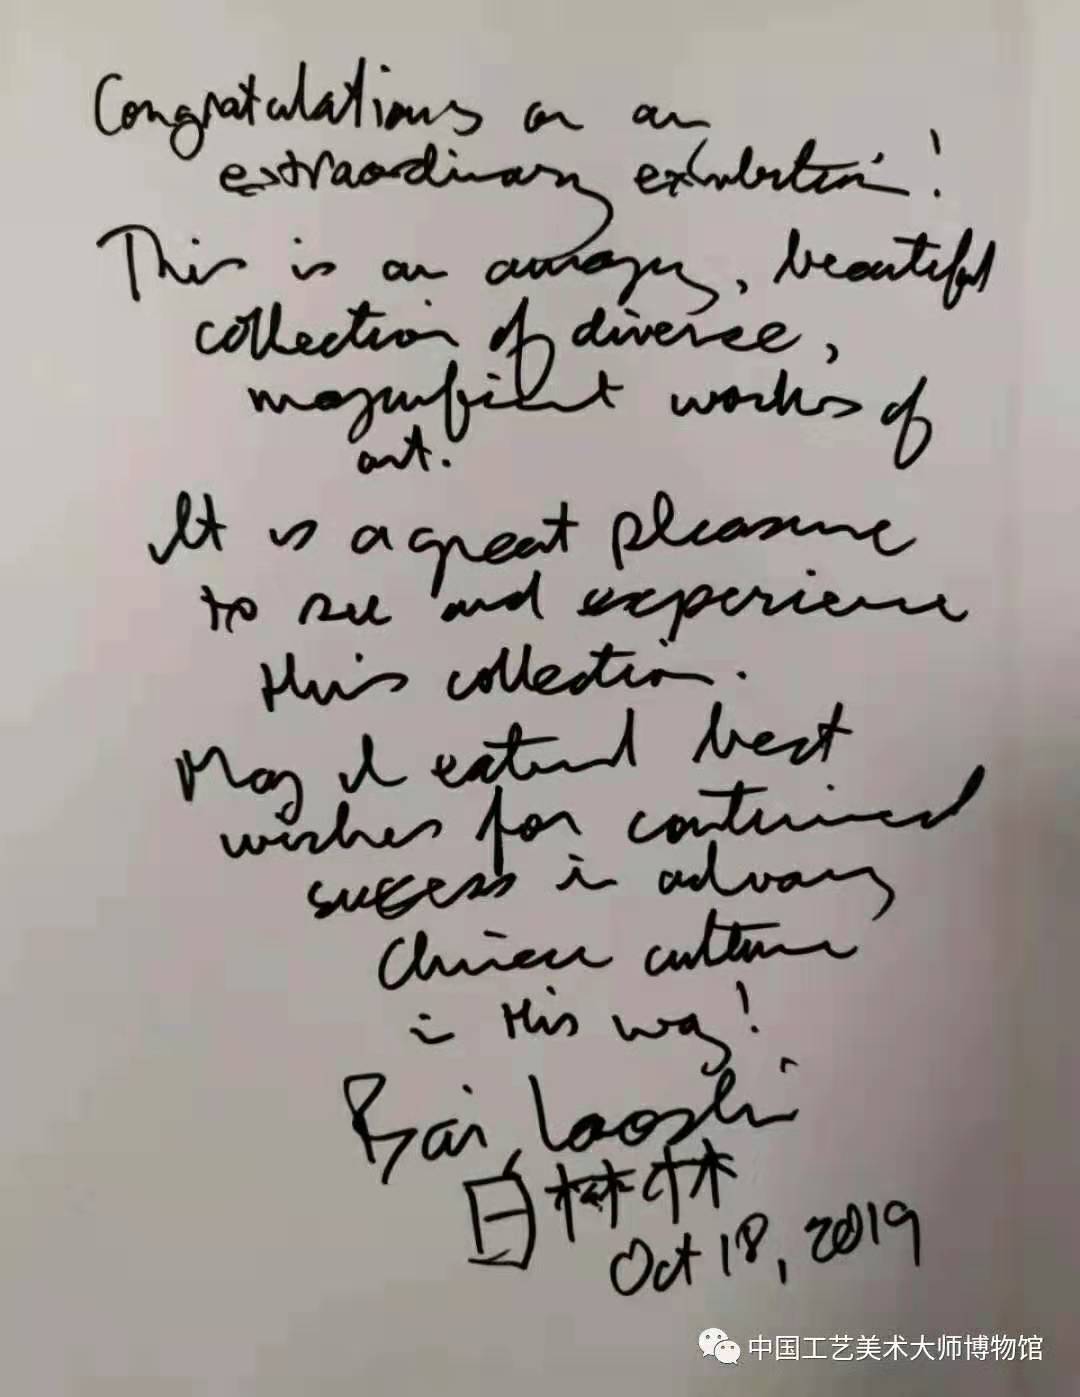 Congratulations on an
extraordinary exhibition!
This is an amazing, beautiful
collection of diverse,
magnificent works of
art.
It is a great pleasure
to see and experience
this collection.
May I extend best
wishes for continued
success in advancing
Chinese culture
in this way!
Bai, Laoshi
白林林
Oct 18, 2019
中国工艺美术大师博物馆